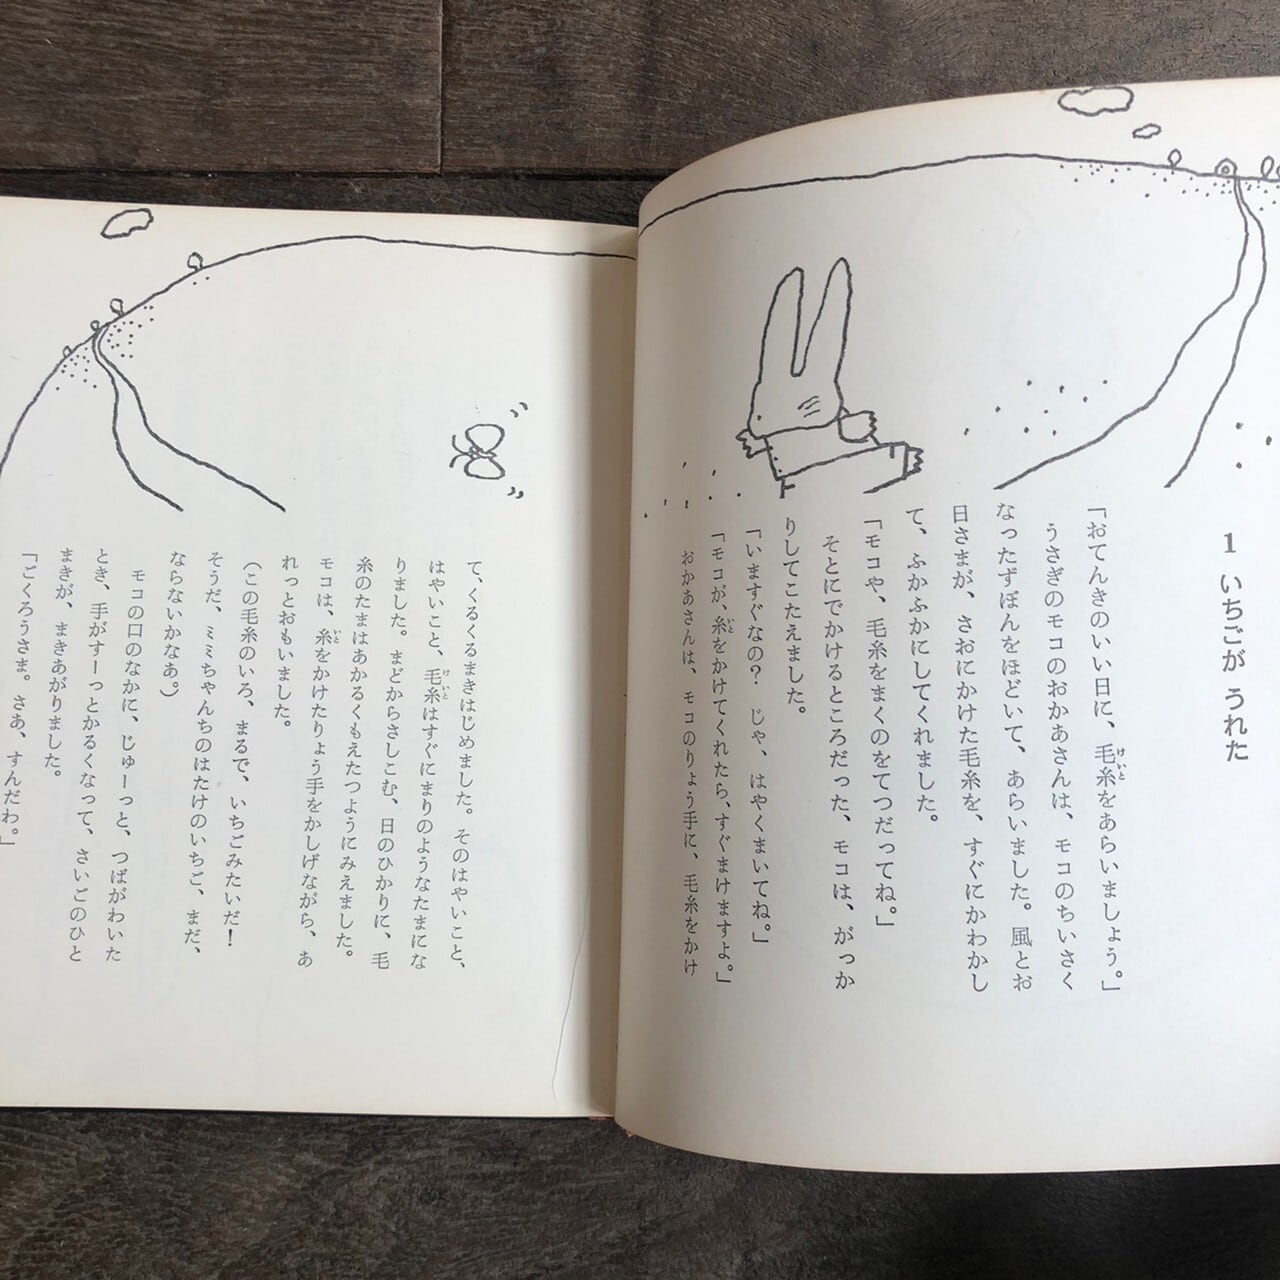 1 いちごが うれた
「おてんきのいい日に、毛糸をあらいましょう。」
うさぎのモコのおかあさんは、モコのちいさく
なったずぼんをほどいて、あらいました。風とお
日さまが、さおにかけた毛糸を、すぐにかわかし
て、ふかふかにしてくれました。
「モコや、毛糸をまくのをてつだってね。」
そとにでかけるところだった、モコは、がっか
りしてこたえました。
「いますぐなの? じゃ、はやくまいてね。」
「モコが、糸をかけてくれたら、すぐまけますよ。」
おかあさんは、モコのりょう手に、毛糸をかけ
て、くるくるまきはじめました。そのはやいこと、
はやいこと、毛糸はすぐにまりのようなたまにな
りました。まどからさしこむ、日のひかりに、毛
糸のたまはあかるくもえたつようにみえました。
モコは、糸をかけたりょう手をかしげながら、あ
れっとおもいました。
(この毛糸のいろ、まるで、いちごみたいだ!
そうだ、ミミちゃんちのはたけのいちご、まだ、
ならないかなあ。)
モコの口のなかに、じゅーっと、つばがわいた
とき、手がすーっとかるくなって、さいごのひと
まきが、まきあがりました。
「ごくろうさま。さあ、すんだわ。」